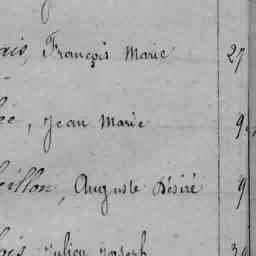 ais, François Marie 27
ée, Jean Marie 9
eillon, Auguste Désiré 9
lais, Julien Joseph 39